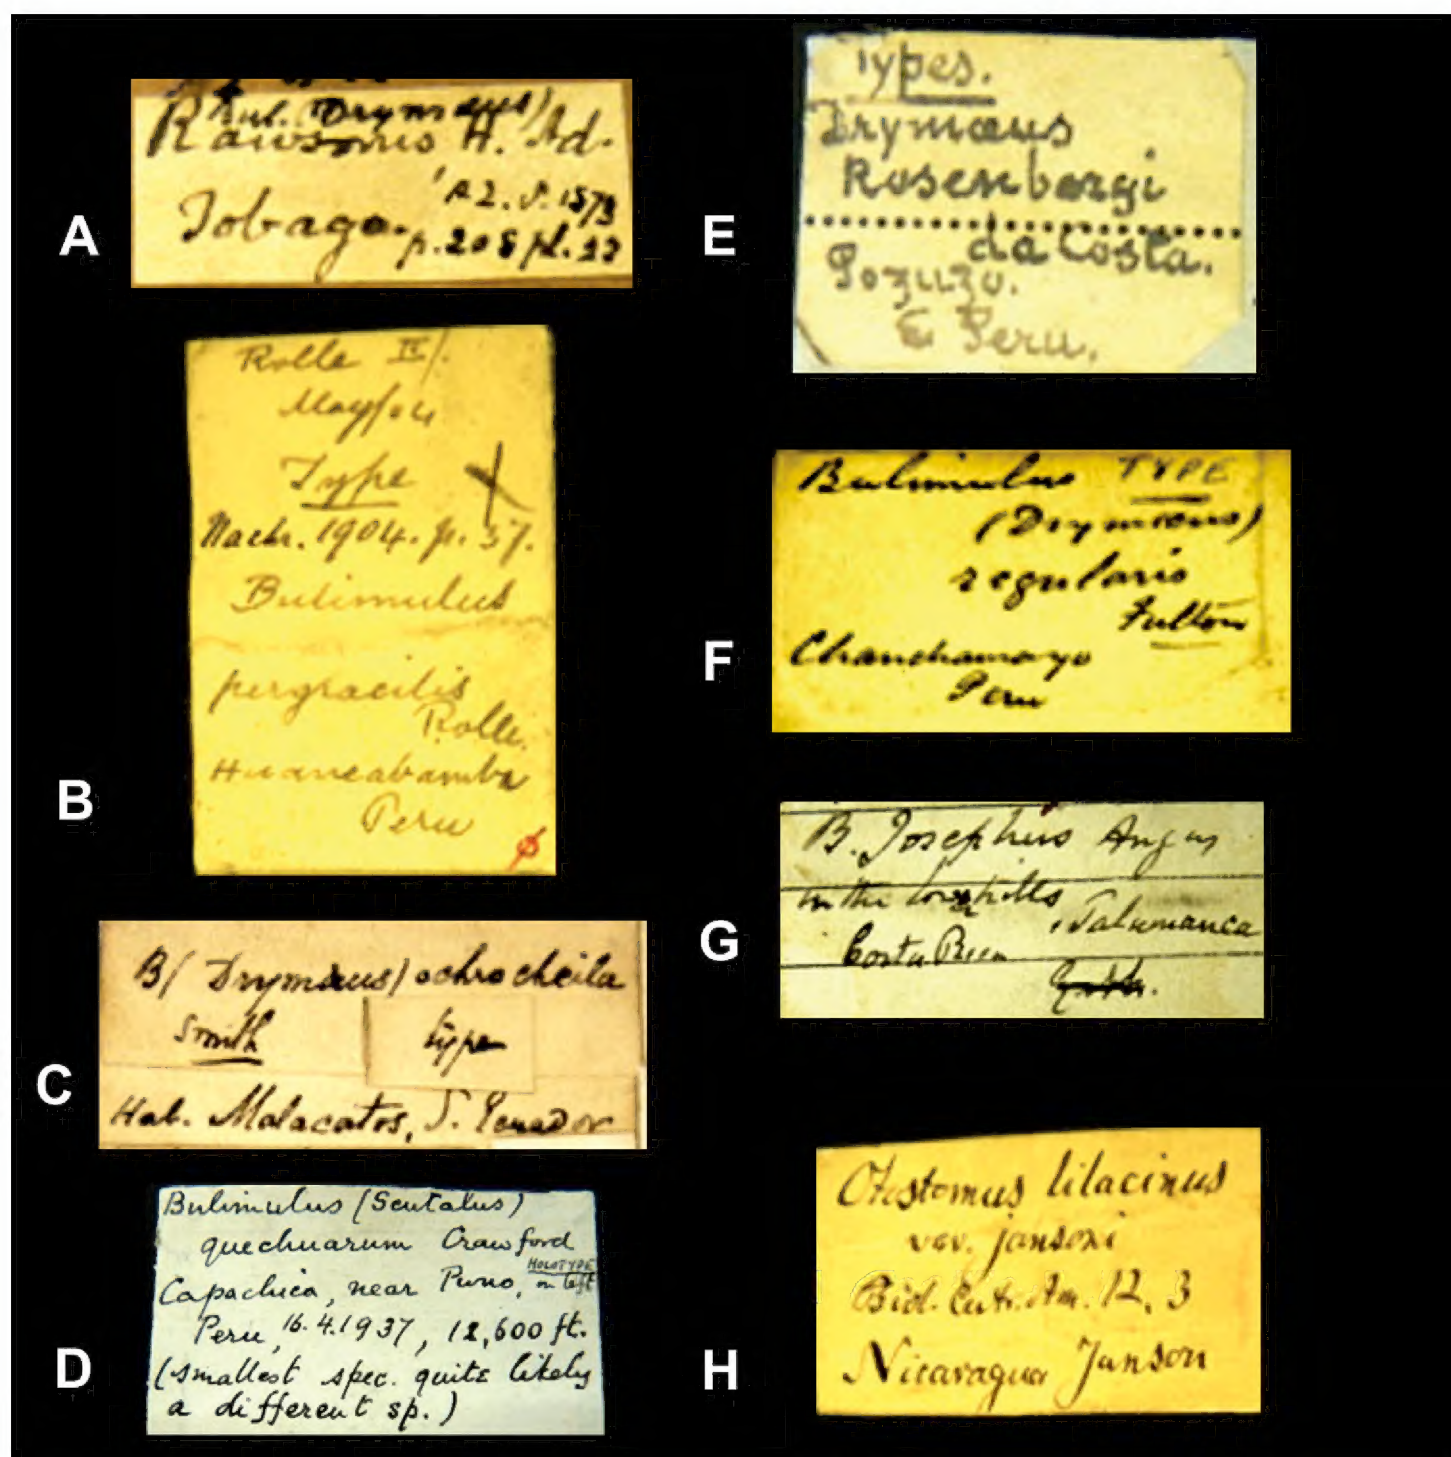 A
Bul. (Drymaeus)
Rawsonis H. Ad.
P.Z.S. 1873
Tobago. p. 208 pl. 22
B
Rolle IV/.
May/04
Type X
Nachr. 1904. p. 37.
Bulimulus
pergracilis
Rolle.
Huancabamba
Peru
C
B/ Drymæus/ ochrocheila
Smith type
Hab. Malacatos, S. Ecuador
D
Bulimulus (Scutalus)
quechuarum Crawford
Capachica, near Puno, HOLOTYPE on left
Peru, 16.4.1937, 12,600 ft.
(smallest spec. quite likely
a different sp.)
E
Types.
Drymæus
Rosenbergi
da Costa.
Pozuzo.
E Peru.
F
Bulimulus TYPE
(Drymæus)
regularis
Fulton
Chanchamayo
Peru
G
B. Josephus Angas
in the low hills, Talamanca
Costa Rica
H
Otostomus lilacinus
var. jansoni
Biol. Centr. Am. 12, 3
Nicaragua Janson